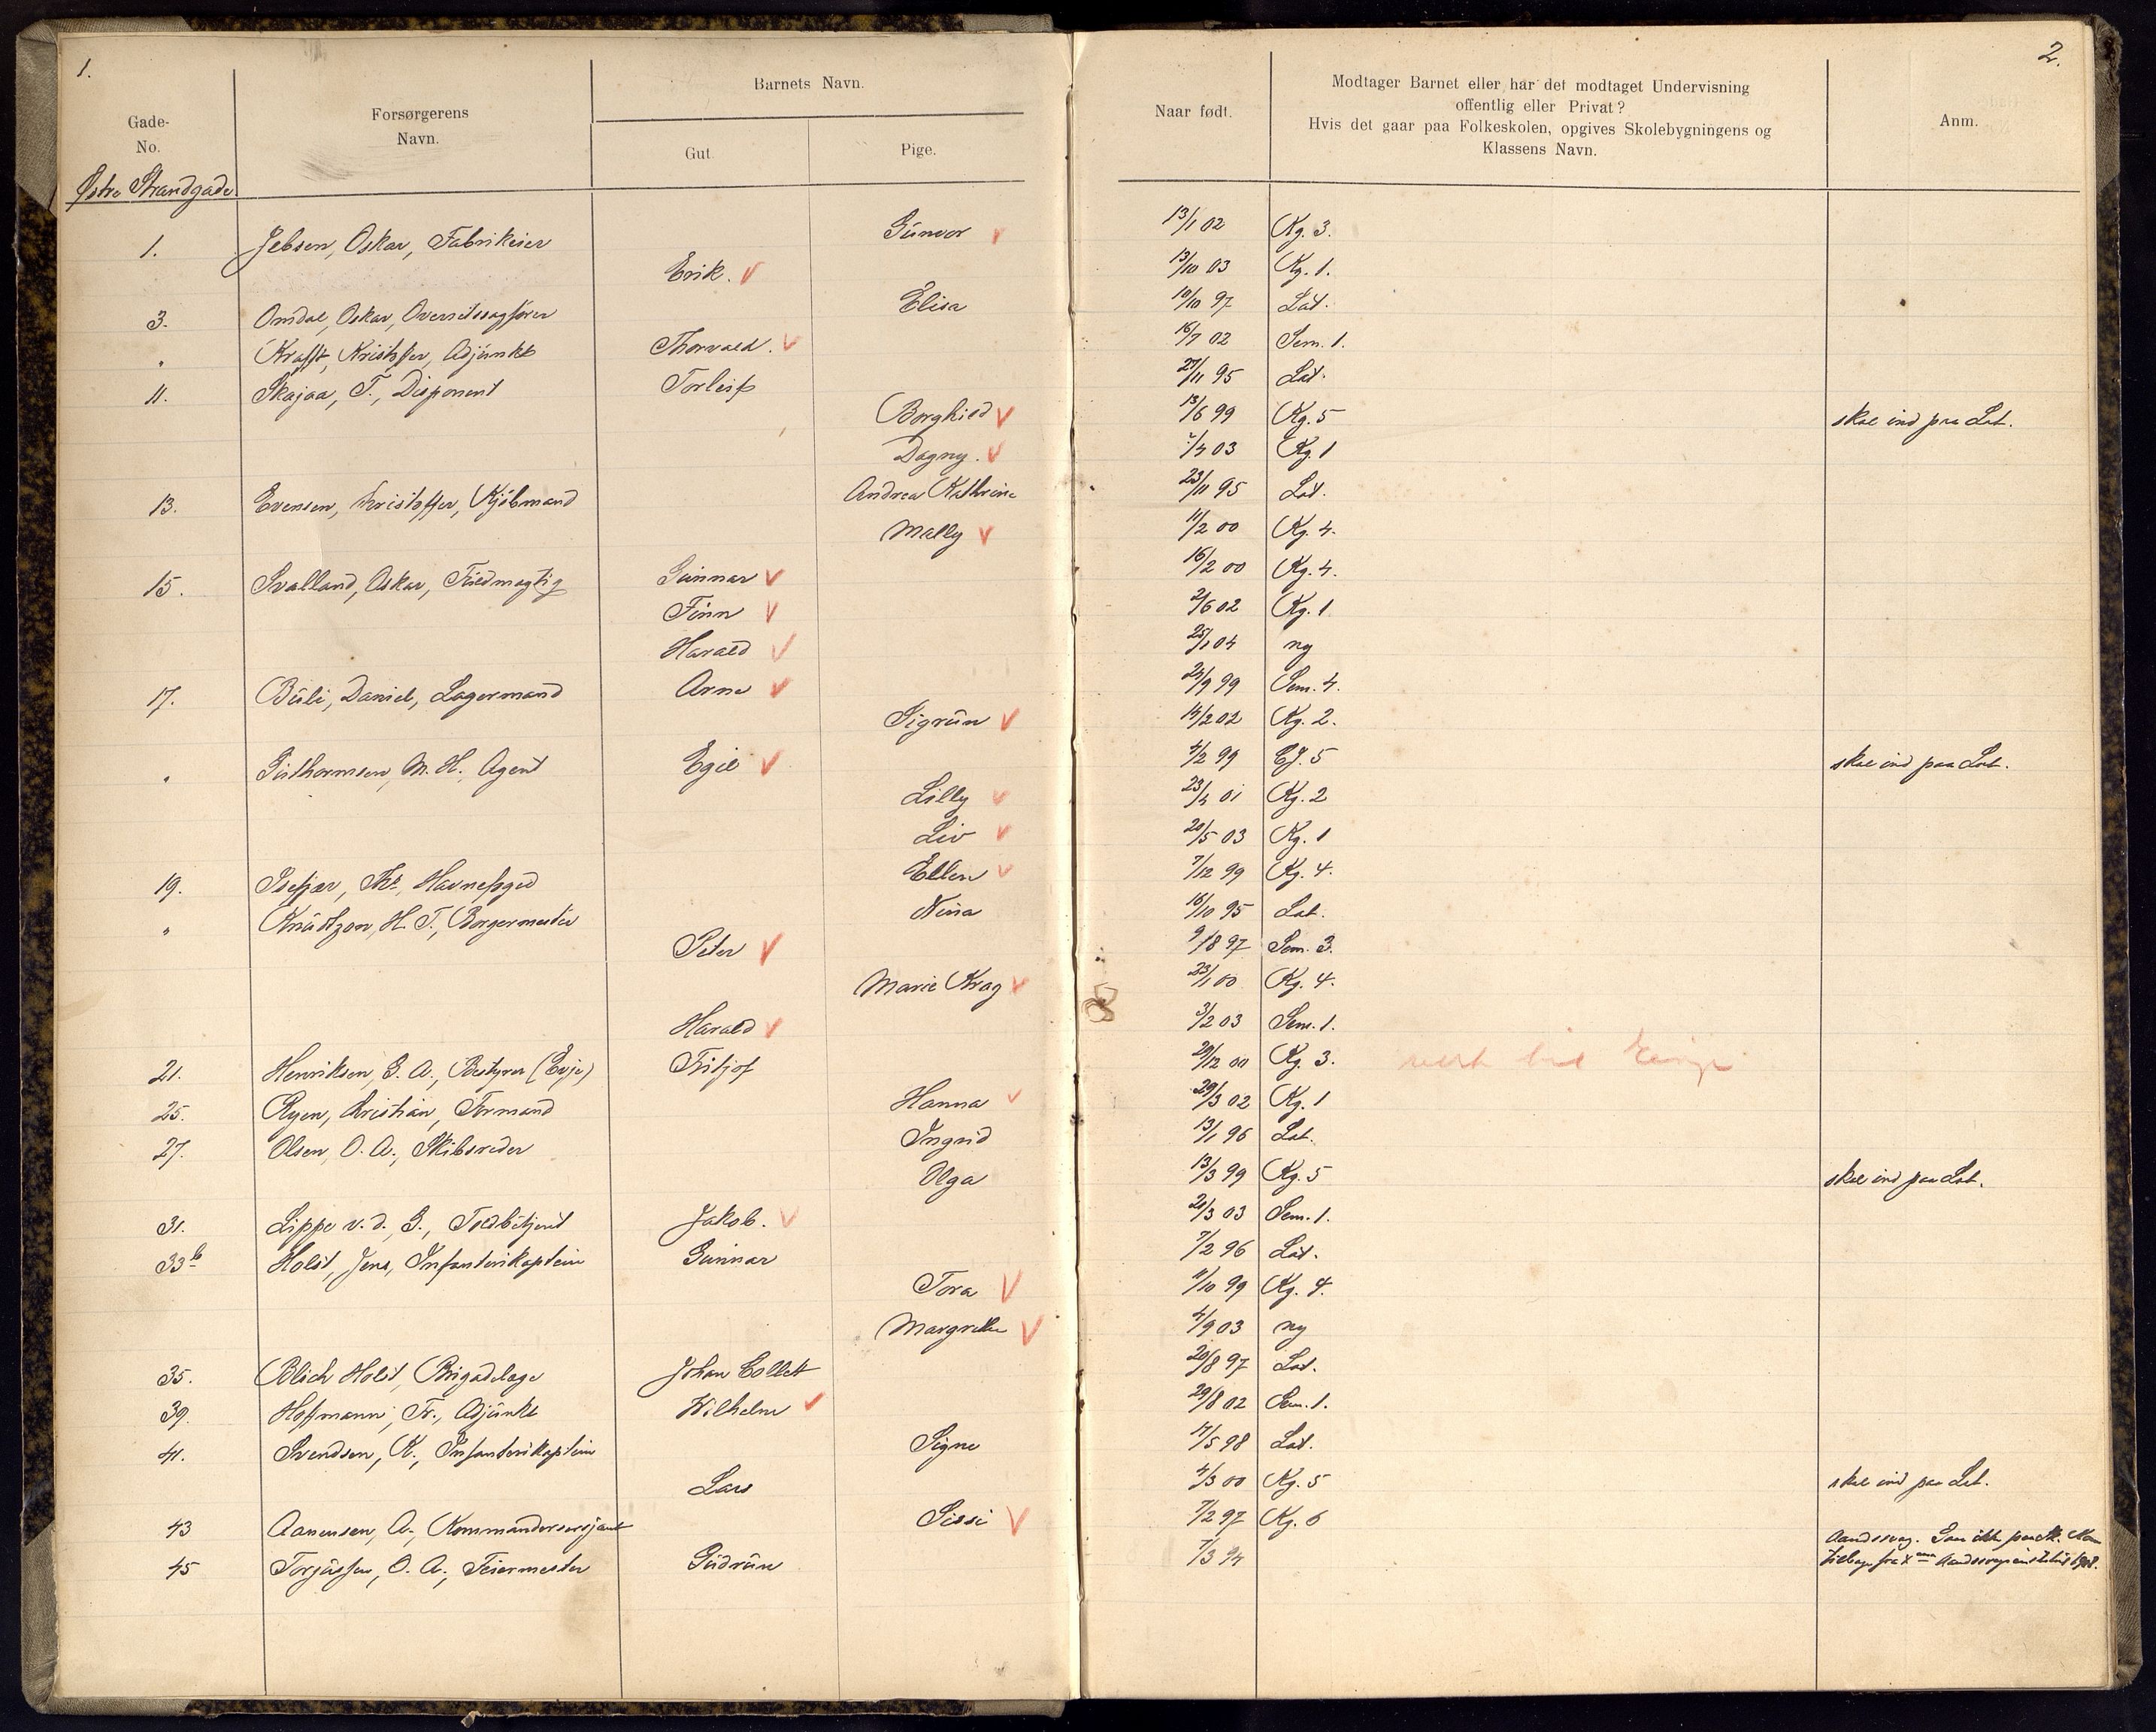 1.
2.
Gade-
No.
Forsørgerens
Navn.
Barnets Navn.
Gut.
Pige.
Naar født.
Modtager Barnet eller har det modtaget Undervisning
offentlig eller Privat?
Hvis det gaar paa Folkeskolen, opgives Skolebygningens og
Klassens Navn.
Anm.
Østre Strandgade.
1. Jebsen, Oskar, Fabrikeier Gunvor 13/1 02 Kg. 3.
Erik. 13/10 03 Kg. 1.
3. Omdal, Oskar, Overretssagfører Elisa 10/10 97 Lat.
" Krafft, Kristoffer, Adjunkt Thorvald. 16/7 02 Sem. 1.
11. Skajaa, T., Disponent Torleif 27/11 95 Lat.
Borghild 13/6 99 Kg. 5 skal ind paa Lat.
Dagny. /4 03 Kg. 1
13. Evensen, Kristoffer, Kjøbmand Andrea Kathrine 23/11 95 Lat.
Mally 11/2 00 Kg. 4.
15. Svalland, Oskar, Fuldmægtig Gunnar 16/2 00 Kg. 4.
Finn 2/6 02 Kg. 1
Harald 25/1 04 ny
17. Daniel, Lagermand Arne 24/9 99 Sem. 4.
Sigrun 14/2 02 Kg. 2.
" Guthormsen, M. H., Agent Egil 4/2 99 5 skal ind paa Lat.
Lilly 23/4 01 Kg. 2
Liv 20/5 03 Kg. 1
19. Havnefoged Ellen 7/12 99 Kg. 4.
" Knudtzon, H. T., Borgermester Nina 16/10 95 Lat.
Peter 9/8 97 Sem. 3.
Marie Krag 23/1 00 Kg. 4.
Harald 3/2 03 Sem. 1.
21. Henriksen, G. A., Bestyrer (Evje) Fritjof 29/12 00 Kg. 3.
25. Ryen, Kristian, Formand Hanna 29/3 02 Kg. 1
27. Olsen, O. A., Skibsreder Ingrid 13/1 96 Lat.
Olga 13/3 99 Kg. 5 skal ind paa Lat.
31. Lippe v. d. G., Toldbetjent Jakob. 21/3 03 Sem. 1.
33b Holst, Jens, Infanterikaptein Gunnar 7/2 96 Lat.
Tora 11/10 99 Kg. 4.
Margrethe 4/9 03 ny
35. Blich Holst, Brigadelæge Johan Collett 20/8 97 Lat.
39. Hofmann, Fr., Adjunkt Wilhelm 29/8 02 Sem. 1.
41. Svendsen, K., Infanterikaptein Signe 17/5 98 Lat.
Lars 4/3 00 Kg. 5 skal ind paa Lat.
43 Aanensen, A., Kommandersersjant Sissi 7/2 97 Kg. 6
45 Torjussen, O. A., Feiermester Gudrun 7/3 94 Aandssvag. Gaar ikke paa Sk. Kom
tilbage fra Aandssvageinstitut 1908.